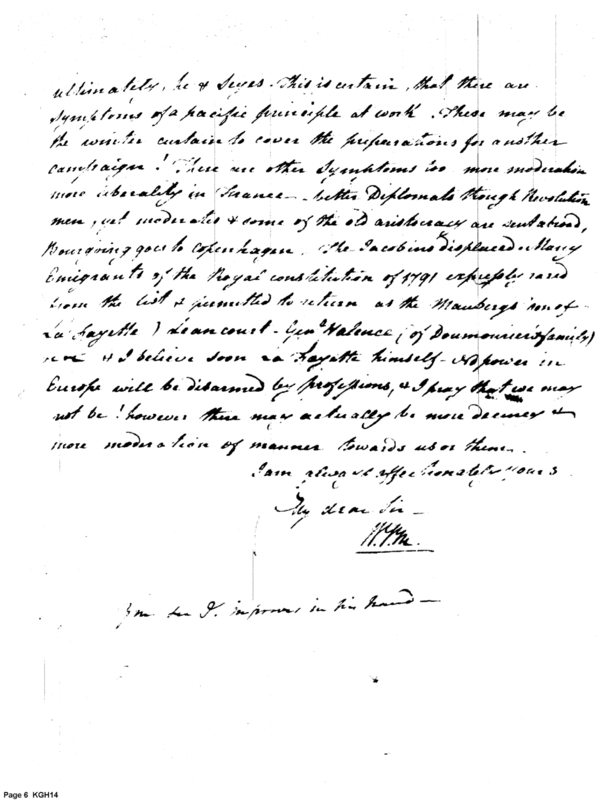 ultimately, he & Seyes. This is certain, that there are
symptoms of a pacific principle at work. These may be
the winter curtain to cover the preparations for another
campaign! There are other symptoms too more moderation
more liberality in France – better Diplomats though Revolution
men, yet moderates & some of the old aristocracy are sent abroad,
Bourgoing goes to Copenhagen. The Jacobins displaced Many
Emigrants of the Royal constitution of 1791 expressly rased
from the list & permitted to return as the Maubergs (one of
La Fayette) Leancourt – Genl Valence (of Doumouriers family)
& I believe soon La Fayette himself – No power in
Europe will be disarmed by professions, & I pray that we may
not be! however there may actually be more decency &
more moderation of manner towards us or them.
I am always affectionately yours
My dear Sir –
W.V.M.
improves in his hand –
Page 6 KGH14